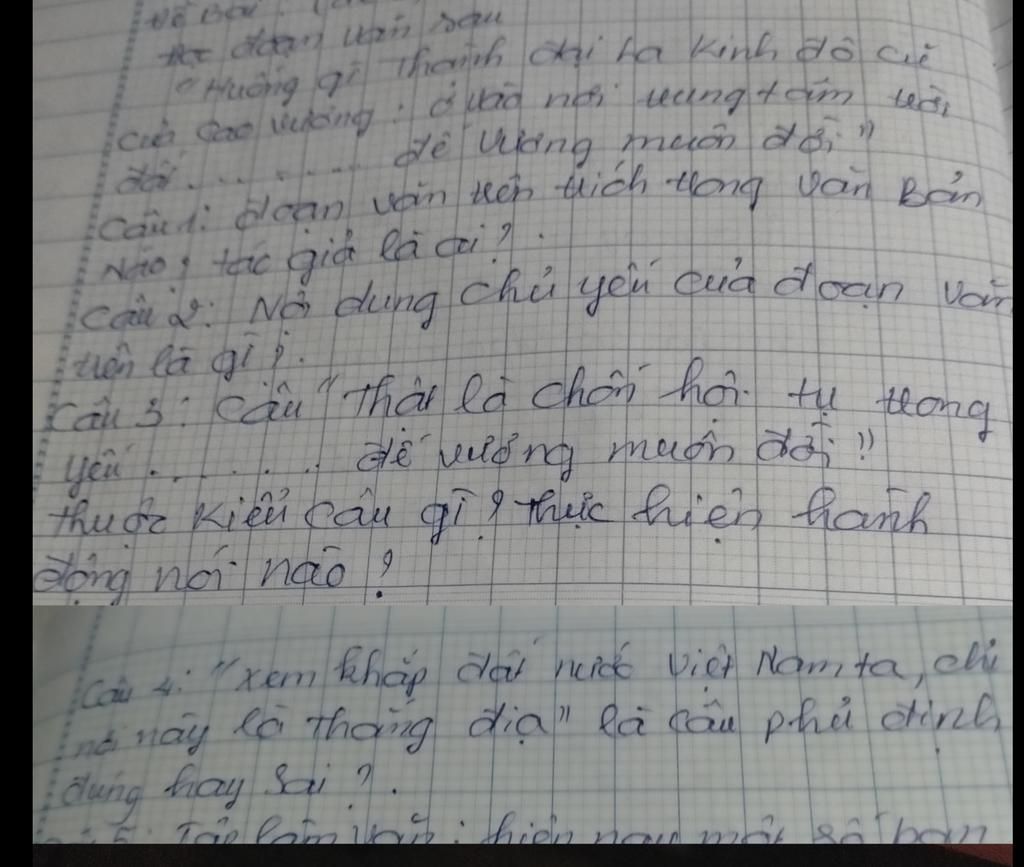 Đề Bài:
đoạn văn sau
"Huống gì Thành Đại La Kinh đô cũ
của Cao Vương: ở vào nơi trung tâm trời
đất............ đế vương muôn đời"
Câu 1: đoạn văn trên trích trong văn Bản
Nào, tác giả là ai?.
Câu 2: Nội dung chủ yếu của đoạn văn
trên là gì?.
Câu 3: Câu "Thật là chốn hội tụ trọng
yếu.......... đế vương muôn đời"
thuộc kiểu câu gì? thực hiện hành
động nói nào?
Câu 4: "xem khắp đất nước Việt Nam ta, chỉ
nơi này là thắng địa" là câu phủ định
đúng hay Sai?.
5: Tập làm văn: hiện nay một số bạn